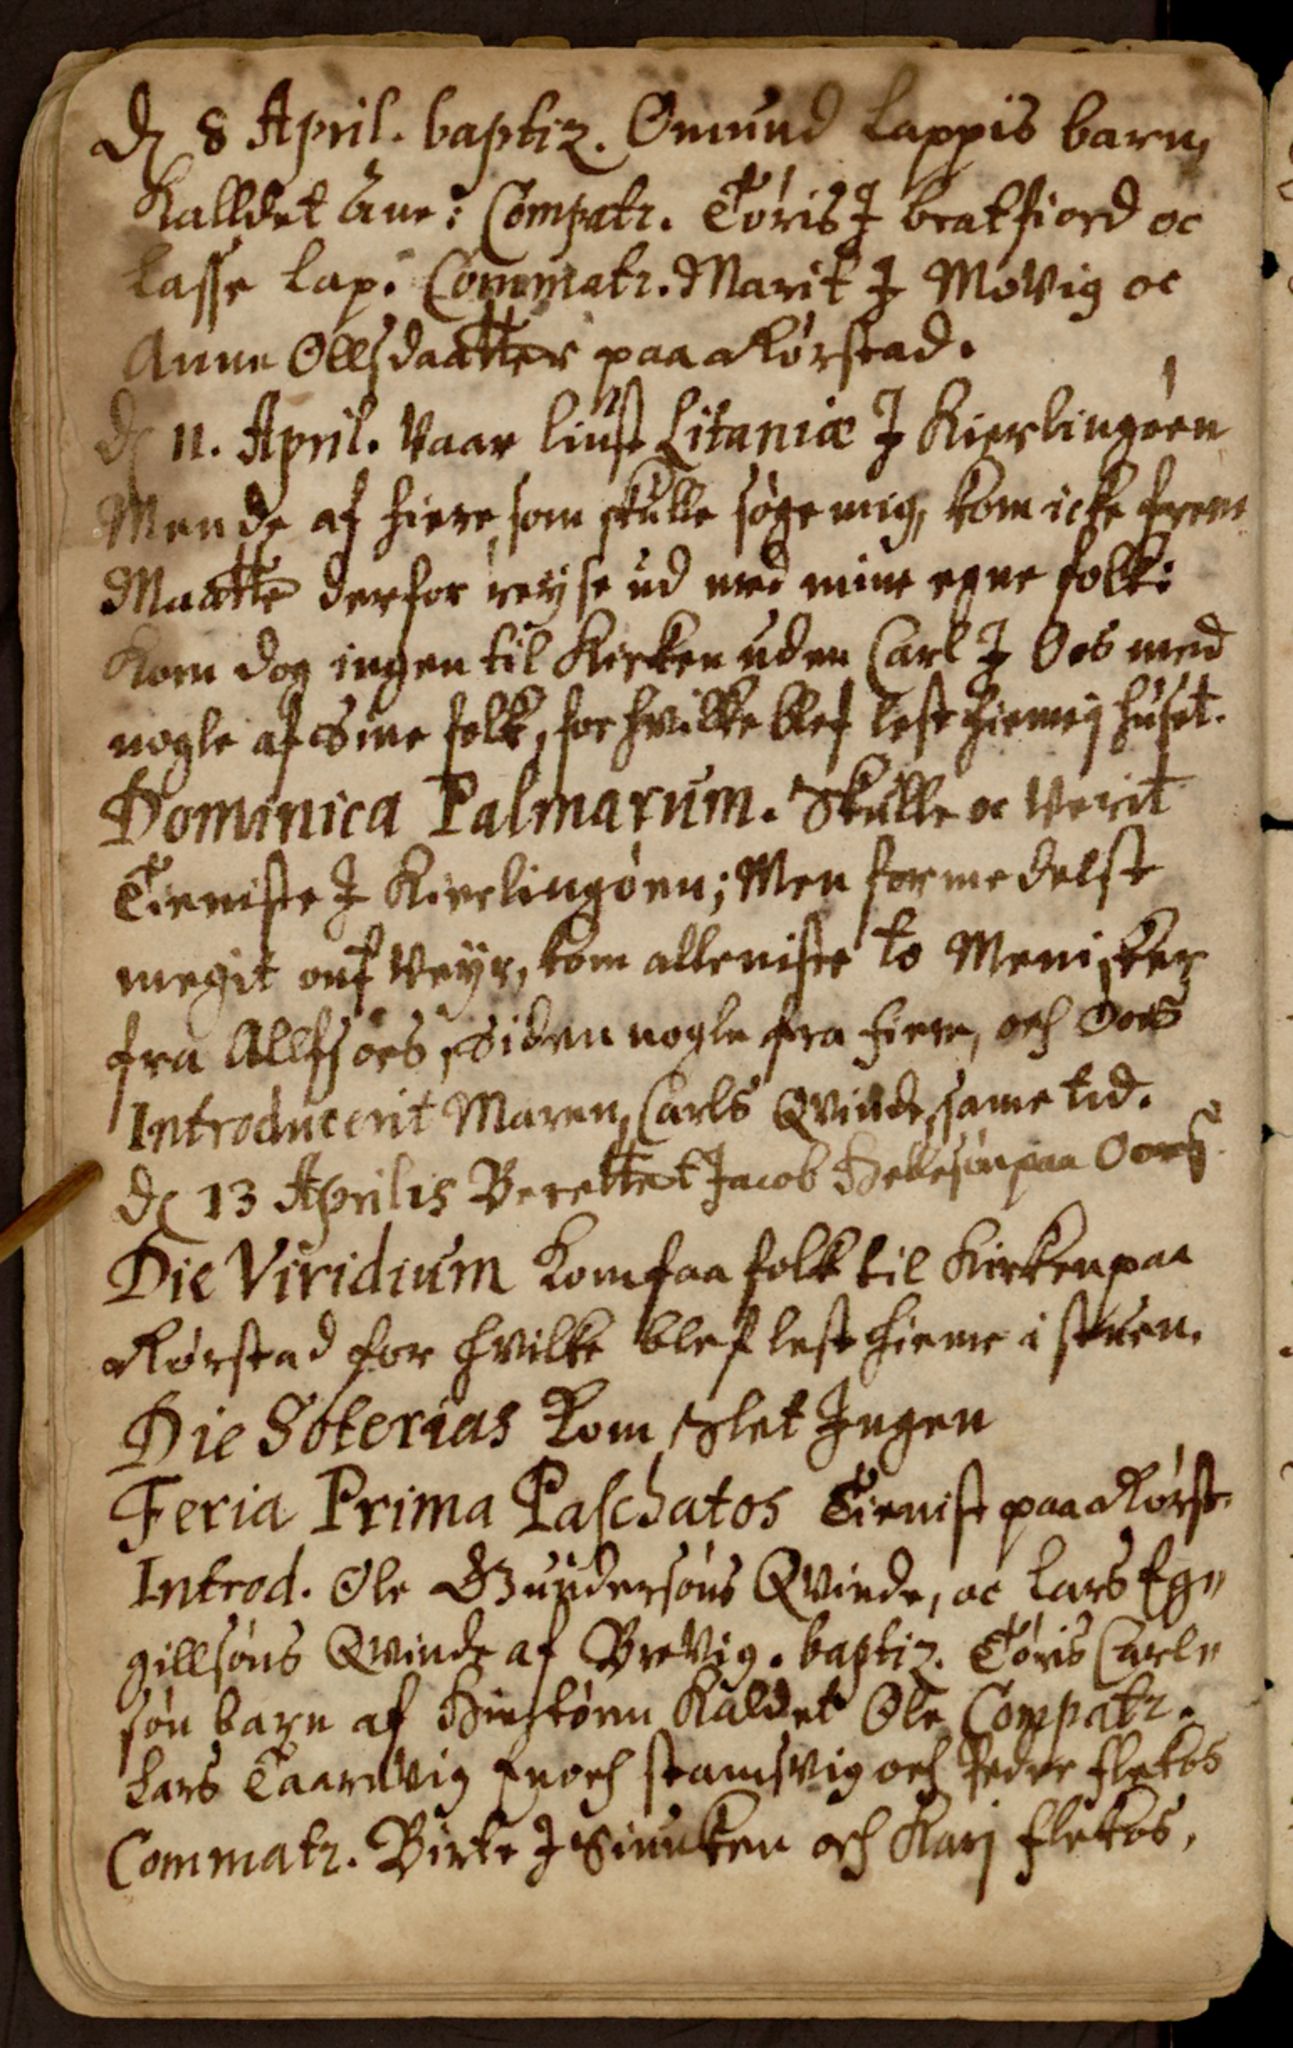 D 8 April. baptiz. Omund Lappis barn,
Kalldet Ane: Compatr. Tøris J bratfiord oc
Lasse Lap. Commatr. Marit J Movig oc
Anne Ollsdaatter paa Rørstad.
D 11. April. Vaar liust Litaniæ J Kierlingøen
Mende af hiere, som skulle søge mig, kom icke frem
Maatte derfor reyse ud med mine egne folk:
Kom dog ingen til Kirken uden Carl J Oos med
nogle af sine folk, for hvilke blef lest hieme j huset.
Dominica Palmarum. Skulle oc Verit
Tieniste J Kierlingøen; Men formedelst
megit ont Veyr, kom alleniste to Menisker
fra Allfsoes, Siden nogle fra hiere, och Oos
Introducerit Maren, Carls Qvinde, same tid.
D 13 Aprilis Berettet Jacob Hellesøn paa Oers
Die Viridium Kom faa folk til Kirken paa
Rørstad for hvilke blef lest hieme i stuen.
Die Soterias Kom Slet Jngen
Feria Prima Paschatos Tienist paa Rørst.
Introd. Ole Gundersøns Qvinde, oc Lars Eg=
gillsøns Qvinde af BreVig. baptiz. Tøris Carl=
søn barn af Kaldet Ole Compatr.
Lars Taarnvig Enoch stamsvig och Peder fletos
Commatr. Birte J Sinnken och Karj fletos,